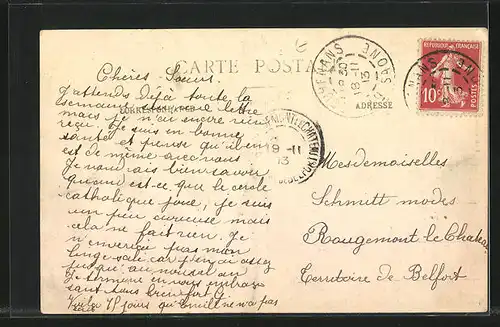 CARTE POSTALE
CORRESPONDANCE
ADRESSE
RÉPUBLIQUE FRANÇAISE
10
POSTES
18-11
13
HTE SAONE
19-11
13
Chères Sœurs
J'attends Déjà toute la
semaine une lettre
mais je n'ai encore rien
reçu. Je suis en bonne
santé et pense qu'il en
est de même avec vous
Je voudrais bien savoir
quand est-ce que le cercle
catholique joue, je suis
un peu curieuse mais
cela ne fait rien. Je
n'enverrai pas mon
linge sale car j'en ai assez
jusqu'au nouvel an
Je termine en vous embras
sant tous bien fort
Voila 15 jours qu'Emill ne m'a pas
Mesdemoiselles
Schmitt modes
Rougemont le Chateau
Territoire de Belfort